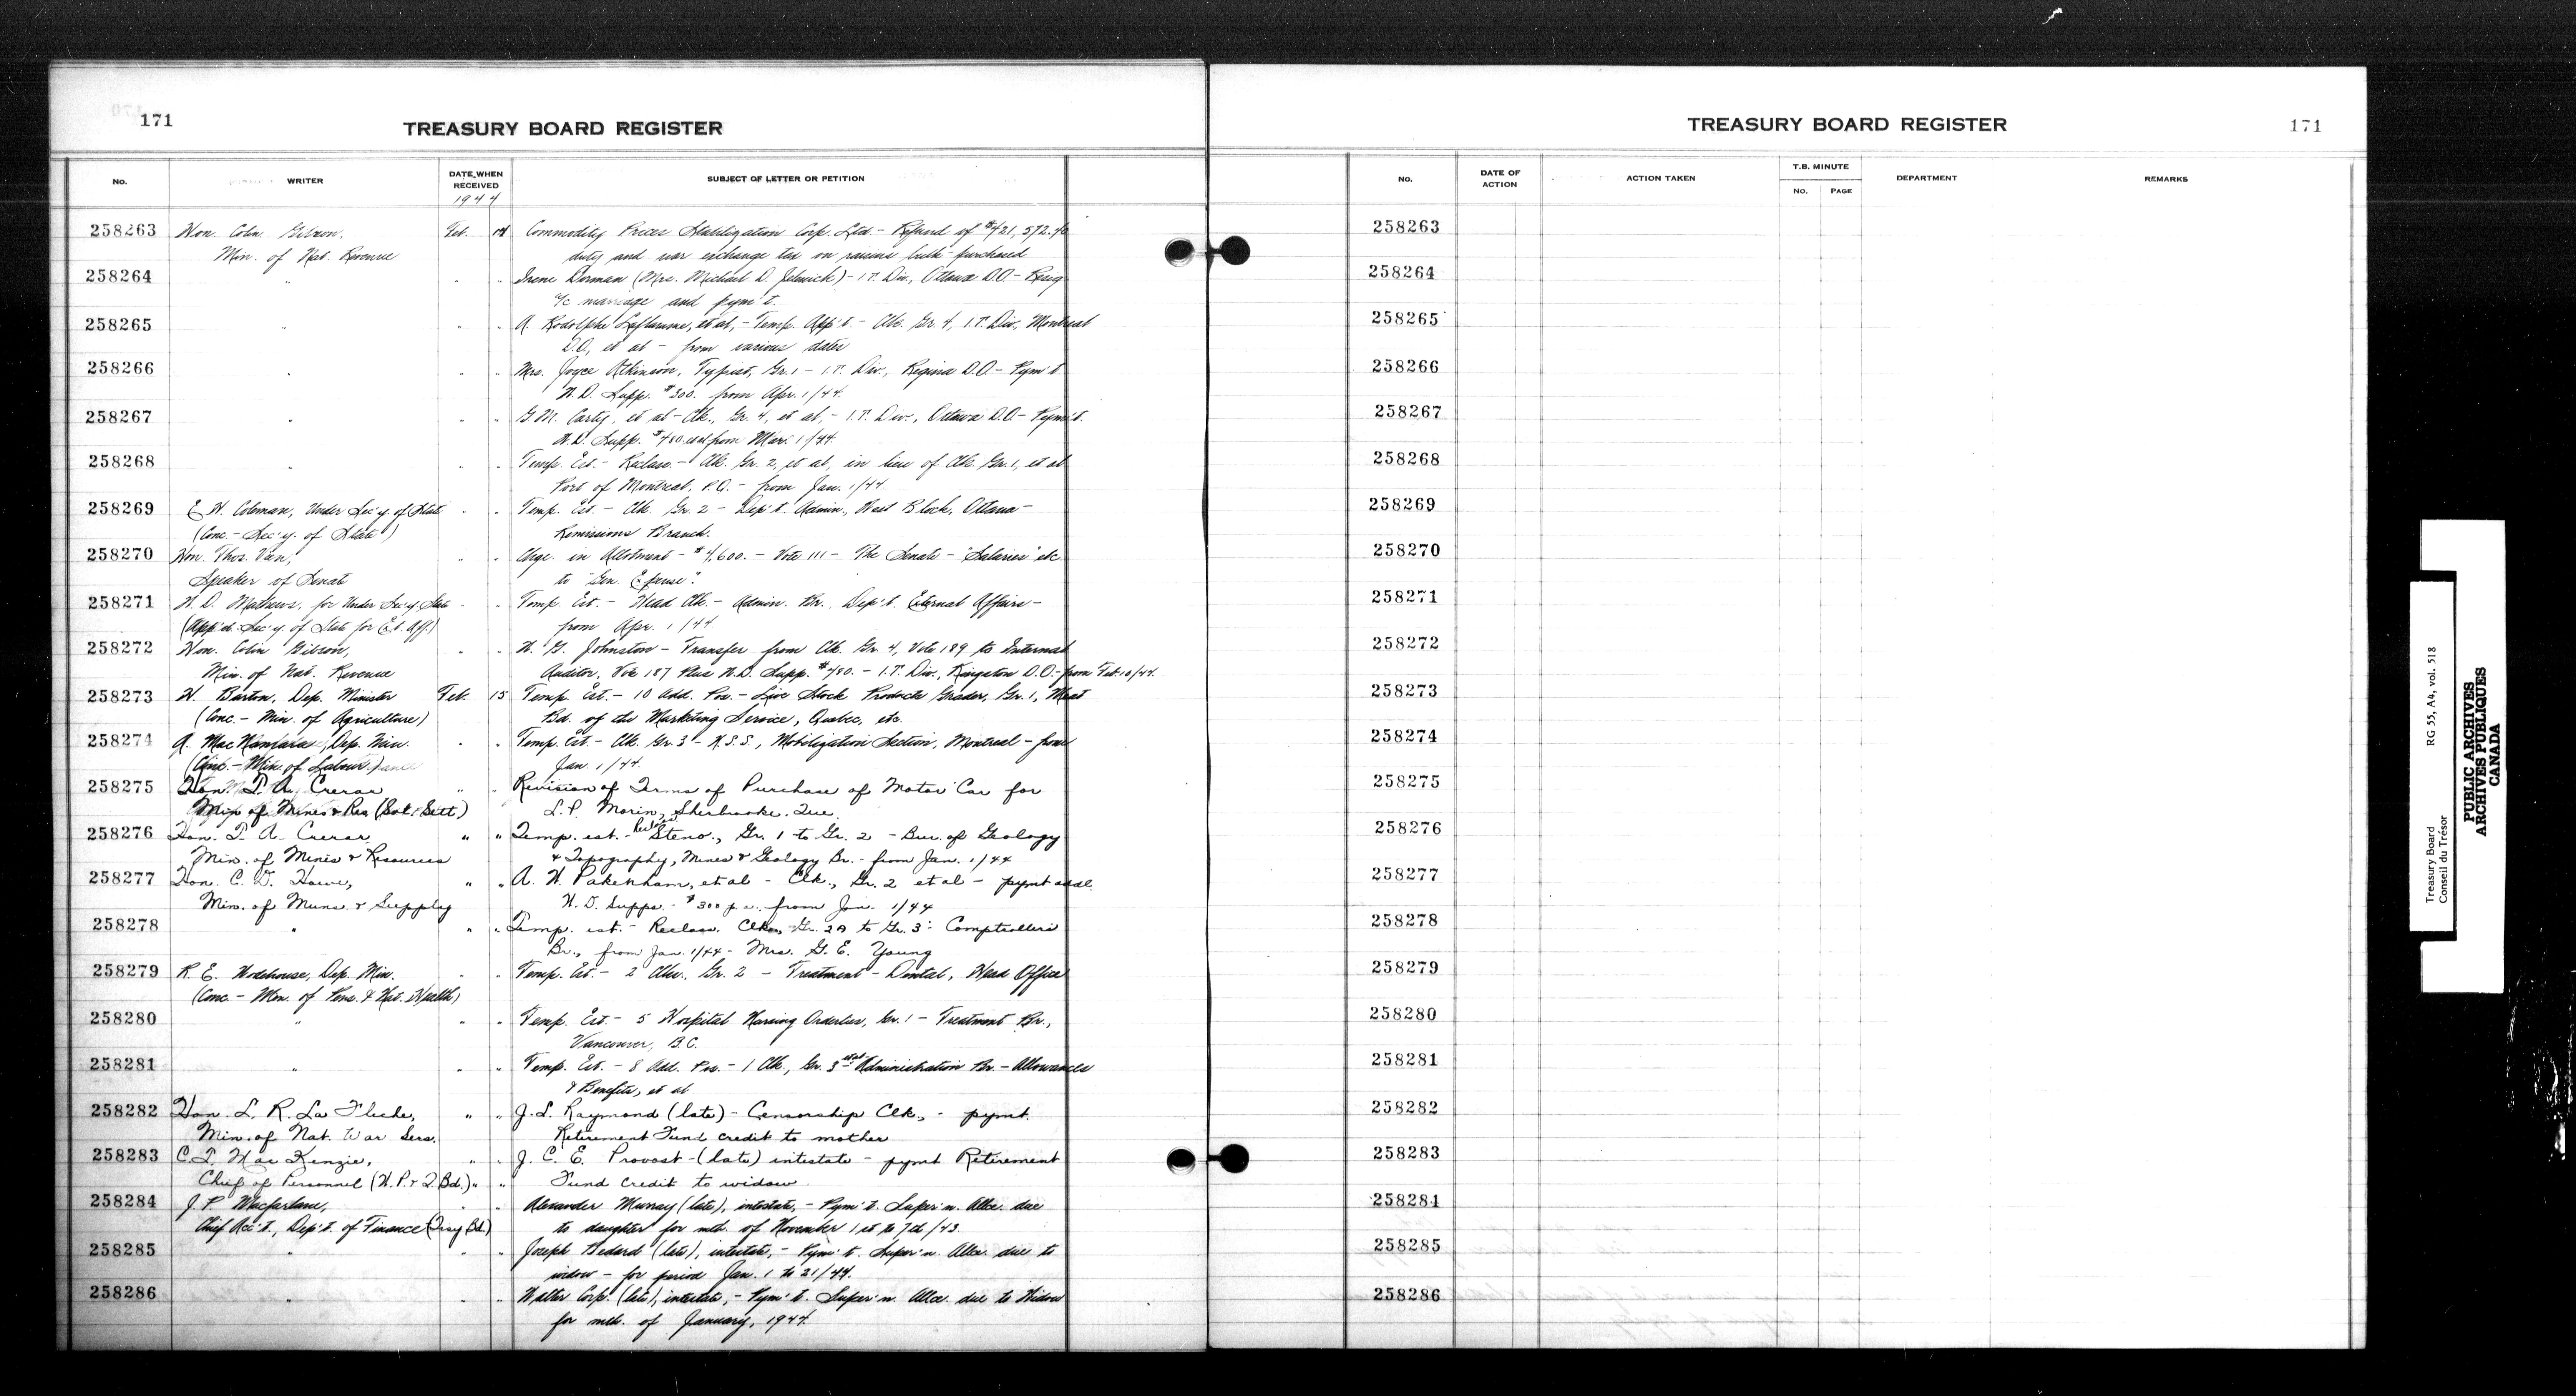 171
TREASURY BOARD REGISTER
No.
WRITER
DATE WHEN RECEIVED
1944
SUBJECT OF LETTER OR PETITION
258263 Hon. Colin Gibson, Feb. 14 Commodity Prices Stabilization Corp. Ltd. - Refund of
Min. of Nat. Revenue duty and war exchange tax on raisins bulk-purchased
258264 " " " Irene Dorman (Mrs. Michael D. ) - I.T. Div., Ottawa D.O. - Resig
a/c marriage and pym't.
258265 " " " A. Rodolphe Laflamme, et al, - Temp. App't. - Clk. Gr. 4, I.T. Div., Montreal
D.O., et al - from various dates
258266 " " " Mrs. Joyce Atkinson, Typist, Gr. 1 - I.T. Div., Regina D.O. - Pym't.
W.D. Supp. $300. from Apr. 1/44.
258267 " " " G.M. Carty, et al - Clk., Gr. 4, et al, - I.T. Div., Ottawa D.O. - Pym't.
W.D. Supp. $480. et al from Mar. 1/44.
258268 " " " Temp. Est. - Reclass. - Clk. Gr. 2, et al, in lieu of Clk. Gr. 1, et al
Port of Montreal, P.Q. - from Jan. 1/44.
258269 E.H. Coleman, Under Sec'y. of State " " Temp. Est. - Clk. Gr. 2 - Dep't. Admin., West Block, Ottawa -
(Conc. - Sec'y. of State) Remissions Branch.
258270 Hon. Thos. Vien, " " Chge. in Allotment - $4,600. - Vote 111 - The Senate - "Salaries" etc.
Speaker of Senate to "Gen. Expense".
258271 W.D. Mathews, for Under Sec'y. State " " Temp. Est. - Head Clk. - Admin. Br., Dep't. External Affairs -
(App'd. - Sec'y. of State for Ext. Aff.) from Apr. 1/44.
258272 Hon. Colin Gibson, " " W. G. Johnston - Transfer from Clk. Gr. 4, Vote 189 to Internal
Min. of Nat. Revenue Auditor, Vote 187 Plus W.D. Supp. $480. - I.T. Div., Kingston D.O. - from Feb. 10/44.
258273 H. Barton, Dep. Minister Feb. 15 Temp. Est. - 10 Add. Pos. - Live Stock Products Grader, Gr. 1, Meat
(Conc. - Min. of Agriculture) Bd. of the Marketing Service, Quebec, etc.
258274 A. MacNamara, Dep. Min. " " Temp. Est. - Clk. Gr. 3 - N.S.S., Mobilization Section, Montreal - from
(Conc. - Min. of Labour.) Jan. 1/44.
258275 Hon. T. A. Crerar " " Revision of Terms of Purchase of Motor Car for
Min. of Mines & Res (Sol. Sett.) L. P. Morin, Sherbrooke, Que.
258276 Hon. T. A. Crerar, " " Temp. est. - Reclass. Steno., Gr. 1 to Gr. 2 - Bur. of Geology
Min. of Mines & Resources & Topography, Mines & Geology Br. - from Jan. 1/44
258277 Hon. C. D. Howe, " " A. W. Pakenham, et al - Clk., Gr. 2 et al - pymt addl.
Min. of Muns. & Supply W. D. Supps. - $300 p.a. from Jan. 1/44
258278 " " " Temp. est. - Reclass. Clks., Gr. 2A to Gr. 3 - Comptroller's
Br., from Jan. 1/44 - Mrs. G. E. Young
258279 R. E. Wodehouse, Dep. Min. " " Temp. Est. - 2 Clks. Gr. 2 - Treatment - Dental, Head Office
(Conc. - Min. of Pens. & Nat. Health)
258280 " " " Temp. Est. - 5 Hospital Nursing Orderlies, Gr. 1 - Treatment Br.,
Vancouver, B.C.
258281 " " " Temp. Est. - 8 Add. Pos. - 1 Clk., Gr. 3 et al Administration Br. - Allowances
& Benefits, et al
258282 Hon. L. R. La Fleche, " " J. L. Raymond (late) - Censorship Clk., - pymt.
Min. of Nat. War Serv. Retirement Fund credit to mother
258283 C. T. Mac Kenzie, " " J. C. E. Provost - (late) intestate - pymt Retirement
Chief of Personnel (W. P. & T. Bd.) " " Fund credit to widow
258284 J. P. Macfarlane, " " Alexander Murray (late), intestate, - Pym't. Super'n. Allce. due
Chief Acc't., Dep't. of Finance (Treas Bd.) to daughter for mth. of November 1st to 7th/43.
258285 " " " Joseph Bedard (late), intestate, - Pym't. Super'n. Allce. due to
widow - for period Jan. 1 to 21/44.
258286 " " " Walter Corp. (late), intestate, - Pym't. Super'n. Allce. due to Widow
for mth. of January, 1944.
TREASURY BOARD REGISTER
171
No.
DATE OF ACTION
ACTION TAKEN
T.B. MINUTE
No.
PAGE
DEPARTMENT
REMARKS
258263
258264
258265
258266
258267
258268
258269
258270
258271
258272
258273
258274
258275
258276
258277
258278
258279
258280
258281
258282
258283
258284
258285
258286
Treasury Board
Conseil du Trésor
RG 55, A4, vol. 518
PUBLIC ARCHIVES
ARCHIVES PUBLIQUES
CANADA